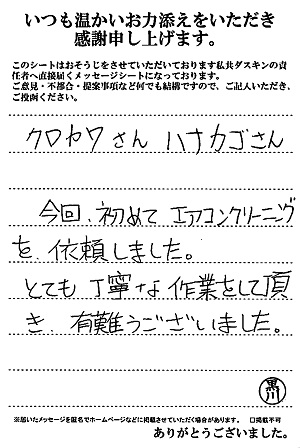 いつも温かいお力添えをいただき
感謝申し上げます。
このシートはおそうじをさせていただいております私共ダスキンの責
任者へ直接届くメッセージシートになっております。
ご意見・不都合・提案事項など何でも結構ですので、ご記入いただき、
ご投函ください。
クロカワさん ハナカゴさん
今回、初めて エアコンクリーニング
を 依頼しました。
とても 丁寧な 作業をして頂
き、有難うございました。
黒川
※届いたメッセージを匿名でホームページなどに掲載させていただく場合があります。 口掲載不可
ありがとうございました。